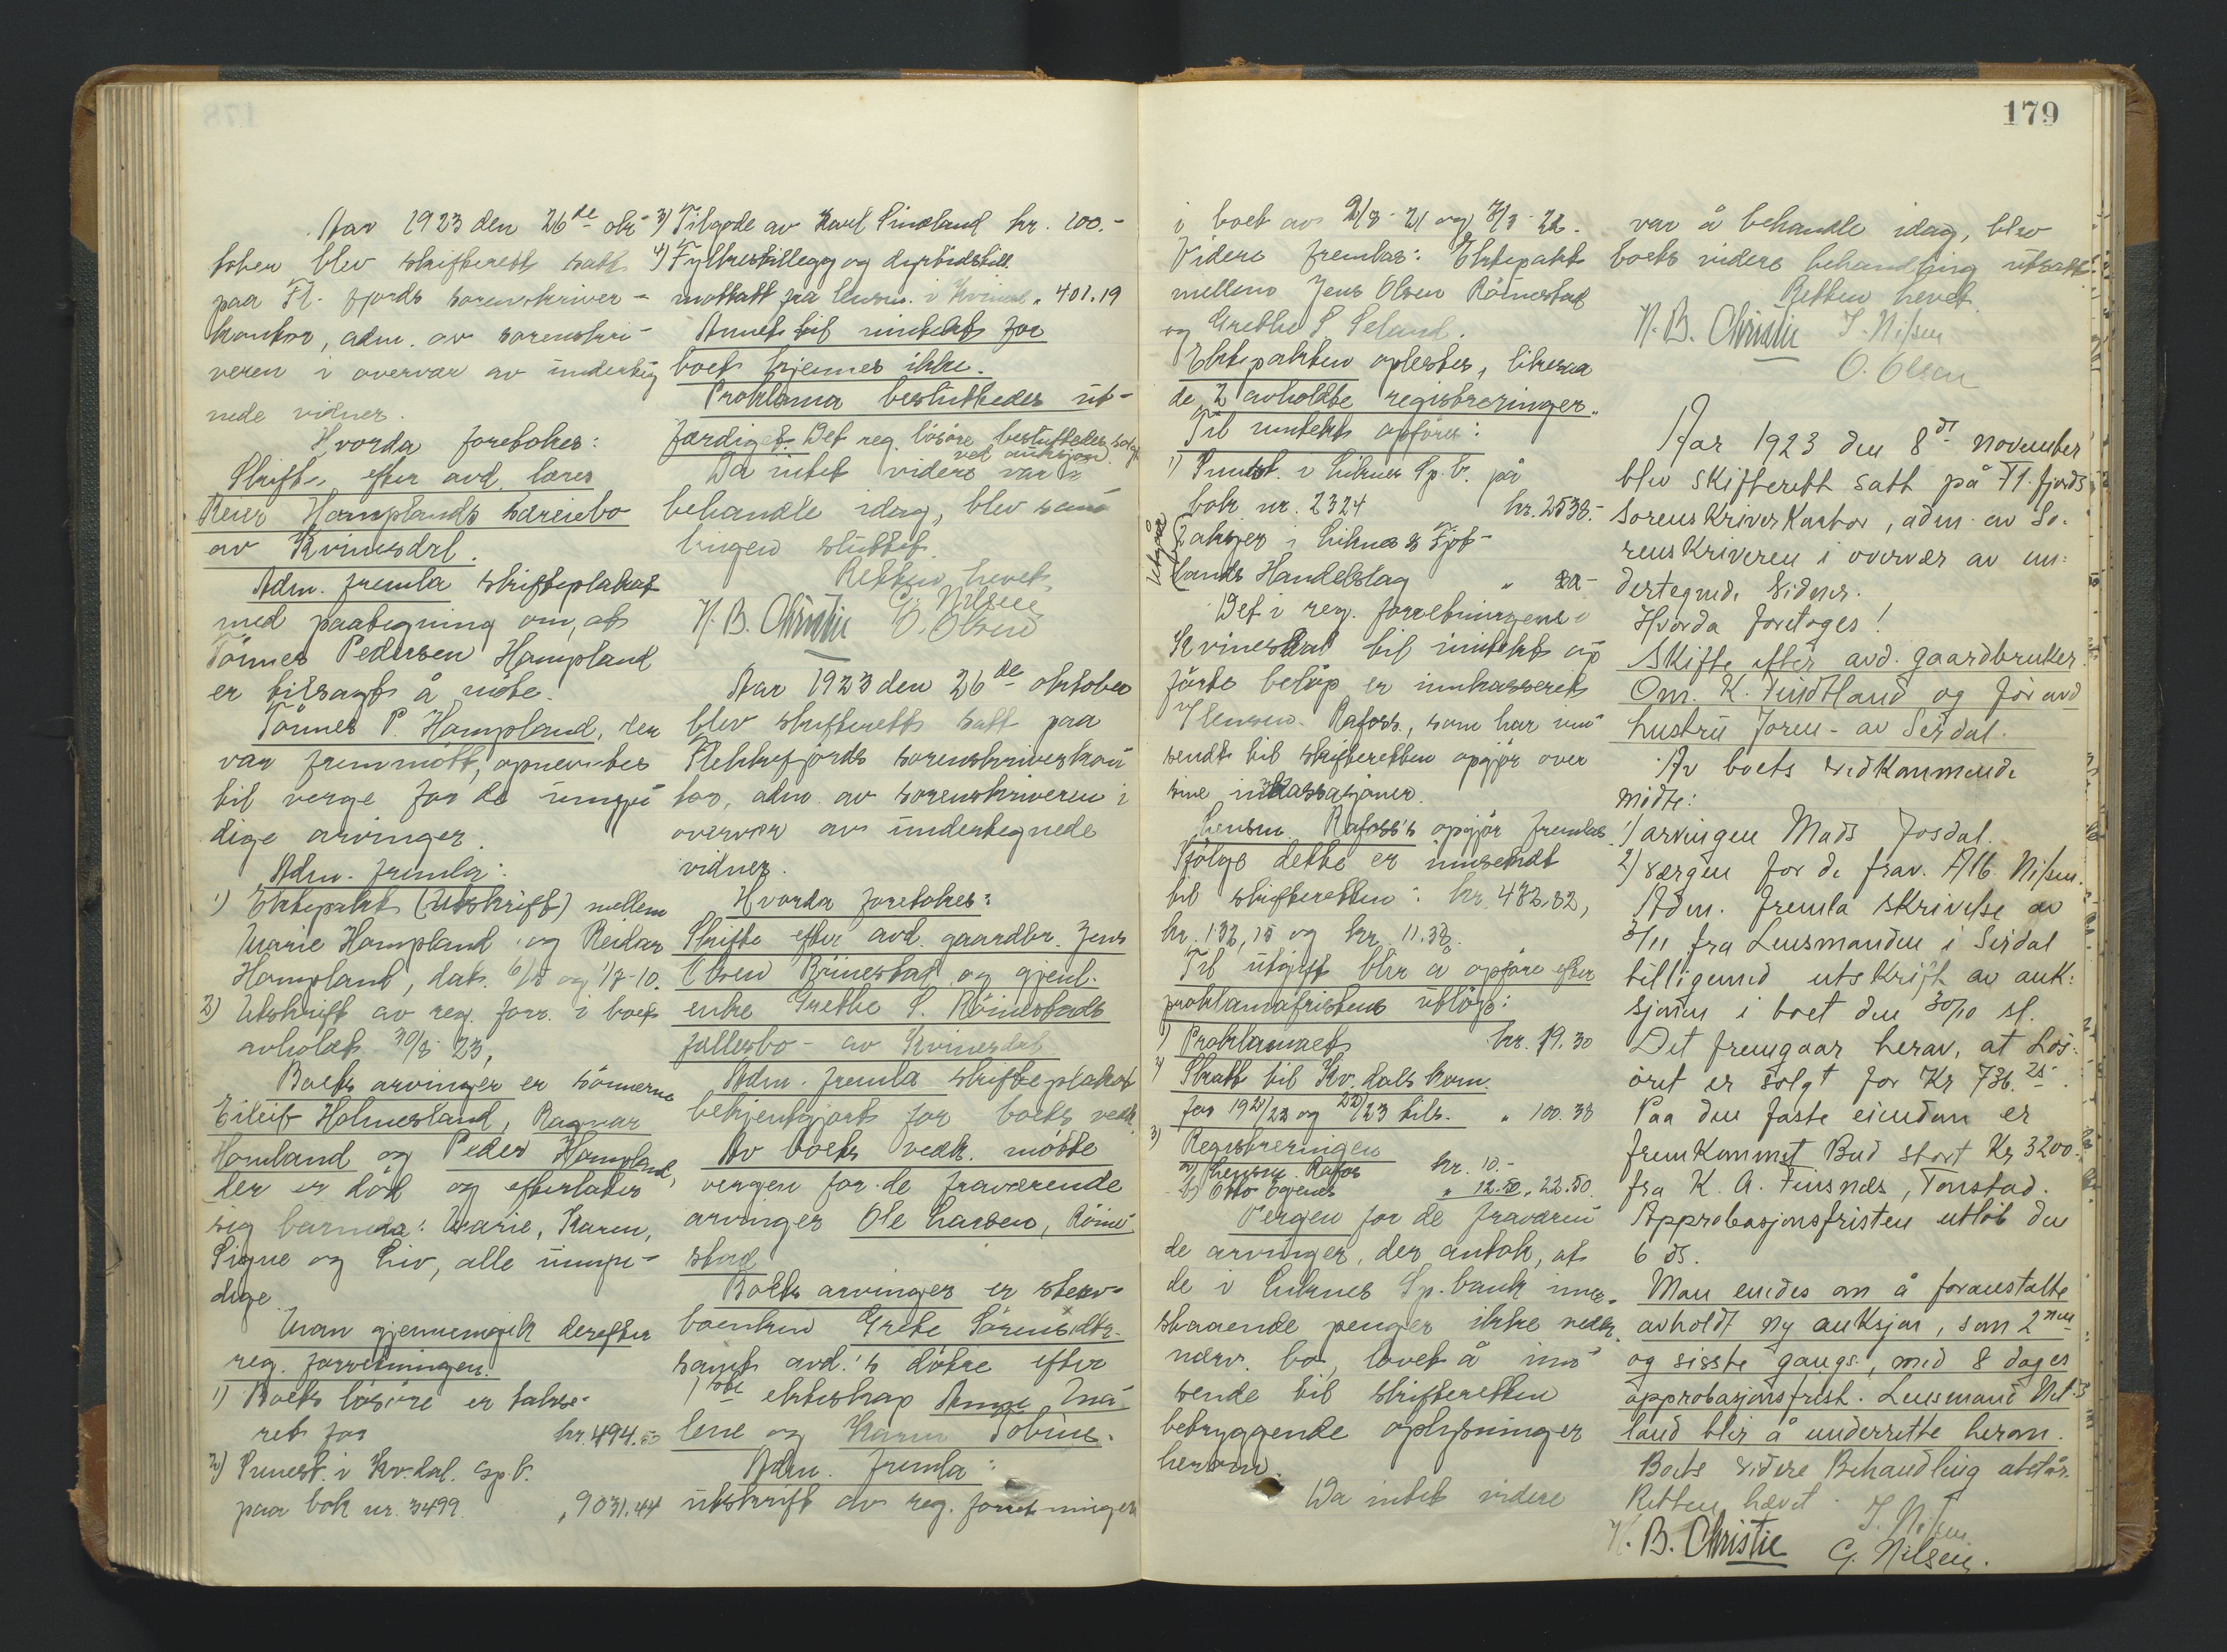 179
Aar 1923 den 26de ok-
tober blev skifterett satt
paa Fl. fjords sorenskriver-
kontor, adm. av sorenskri-
veren i overvær av underteg
nede vidner.
Hvorda foretokes:
Skifte efter avd. lærer
Reier Hamplands særeiebo
av Kvinesdal.
Adm. fremla skifteplakat
med paategning om, at
Tönnes Pedersen Hompland
er tilsagt å møte.
Tönnes P. Hompland, der
var fremmött, opnevntes
til verge for de umyn
dige arvinger.
Adm. fremla:
1) Ektepakt (Utskrift) mellem
Marie Hompland og Reidar
Hompland, dat. og 1/7-10.
2) Utskrift av reg. forr. i boet
avholdt 30/8 23,
Boets arvinger er sönnerne
Eileif Holmesland, Ragnar
Homland og Peder Hompland,
der er död og efterlater
sig barna: Marie, Karen,
Signe og Liv, alle umyn-
dige
Man gjennemgik derefter
reg. forretningen.
1) Boets lösöre er takse-
ret for kr. 494.50
2) Innest. i Kv.dal. Sp.b.
paa bok nr. 3499. „ 9031.44
3) Tilgode av Karl Sineland kr. 100.-
4) Fylkestillegg og dyrtidstill.
mottatt fra lensm. i Kvinesd. „ 401.19
Annet til inntekt for
boet kjennes ikke.
Proklama besluttedes ut-
færdiget. Det reg. lösöre besluttedes solgt
ved auksjon.
Da intet videre var å
behandle idag, blev sam
lingen sluttet.
Retten hevet.
N. B. Christie G. Nilsen
O. Olsen
Aar 1923 den 26de oktober
blev skifterett satt paa
Flekkefjords sorenskriverkon
tor, adm. av sorenskriveren i
overvær av undertegnede
vidner.
Hvorda foretokes:
Skifte efter avd. gaardbr. Jens
Olsen Röinestad og gjenl.
enke Grethe S. Röinestads
fællesbo - av Kvinesdal
Adm. fremla skifteplakat
bekjentgjort for boets vedk.
Av boets vedk. mötte
vergen for de fraværende
arvinger Ole Larsen, Röine
stad
Boets arvinger er sterv-
boenken Grete Sörensdtr.
samt avd.'s dötre efter
1ste ekteskap Anne Ma
lene og Karen Tobine.
Adm. fremla:
utskrift av reg. forretninger
i boet av 2/8-21 og 8/3-22.
Videre fremlas: Ektepakt
mellem Jens Olsen Röinestad
og Grethe S. Seland.
Ektepakten oplestes, likesaa
de 2 avholdte registreringer.
Til inntekt opföres:
1) Innest. i Liknes Sp.b. på
bok nr. 2324 kr. 2538.-
Utgår
2 aksjer i Liknes & Fjot-
lands Handelslag „
Det i reg. forretningene i
Kvinesdal til inntekt op
förte belöp er innkasseret
Lensm. Rafoss, som har inn
sendt til skifteretten opgjör over
sine innkassasjoner.
Lensm. Rafoss's opgjör fremlas
Ifölge dette er innsendt
til skifteretten: kr. 482,82,
kr. 132,15 og kr. 11.33.
Til utgift blir å opföre efter
proklamafristens utlöp:
1) Proklamaet kr. 19.30
2) Skatt til Kv.dals kom.
for 1921/22 og 22/23 tils. „ 100.33
3) Registreringen
a) Lensm. Rafos kr. 10.-
b) Otto Egenes „ 12.50 „ 22.50
Vergen for de fraværen
de arvinger, der antok, at
de i Liknes Sp.bank inne-
staaende penger ikke vedk.
nærv. bo, lovet å inn
sende til skifteretten
betryggende oplysninger
herom.
Da intet videre
var å behandle idag, blev
boets videre behandling utsatt
Retten hevet.
N. B. Christie J. Nilsen
O. Olsen
Aar 1923 den 8de november
blev skifterett satt på Fl.fjords
Sorenskriverkontor, adm. av So-
renskriveren i overvær av un-
dertegnede vidner.
Hvorda foretoges!
Skifte efter avd. gaardbruker
Om. K. Tindtland og før avd
hustru Joren - av Sirdal.
Av boets vedkommende
mødte:
1) arvingen Mads Josdal.
2) værgen for de frav. Alb. Nilsen.
Adm. fremla skrivelse av
3/11 fra Lensmanden i Sirdal
tilligemed utskrift av auk-
sjonen i boet den 30/10 sl.
Det fremgaar herav, at Løs-
øret er solgt for Kr 736.25.
Paa den faste eiendom er
fremkommet Bud stort Kr 3200.-
fra K. A. Finsnes, Tonstad.
Approbasjonsfristen utløb den
6 ds.
Man enedes om å foranstalte
avholdt ny auksjon, som 2nen
og sisste gangs., med 8 dages
approbasjonsfrist. Lensmand Net-
land blir å underrette herom.
Boets videre Behandling utstår.
Retten hævet.
J. Nilsen
N. B. Christie G. Nilsen.